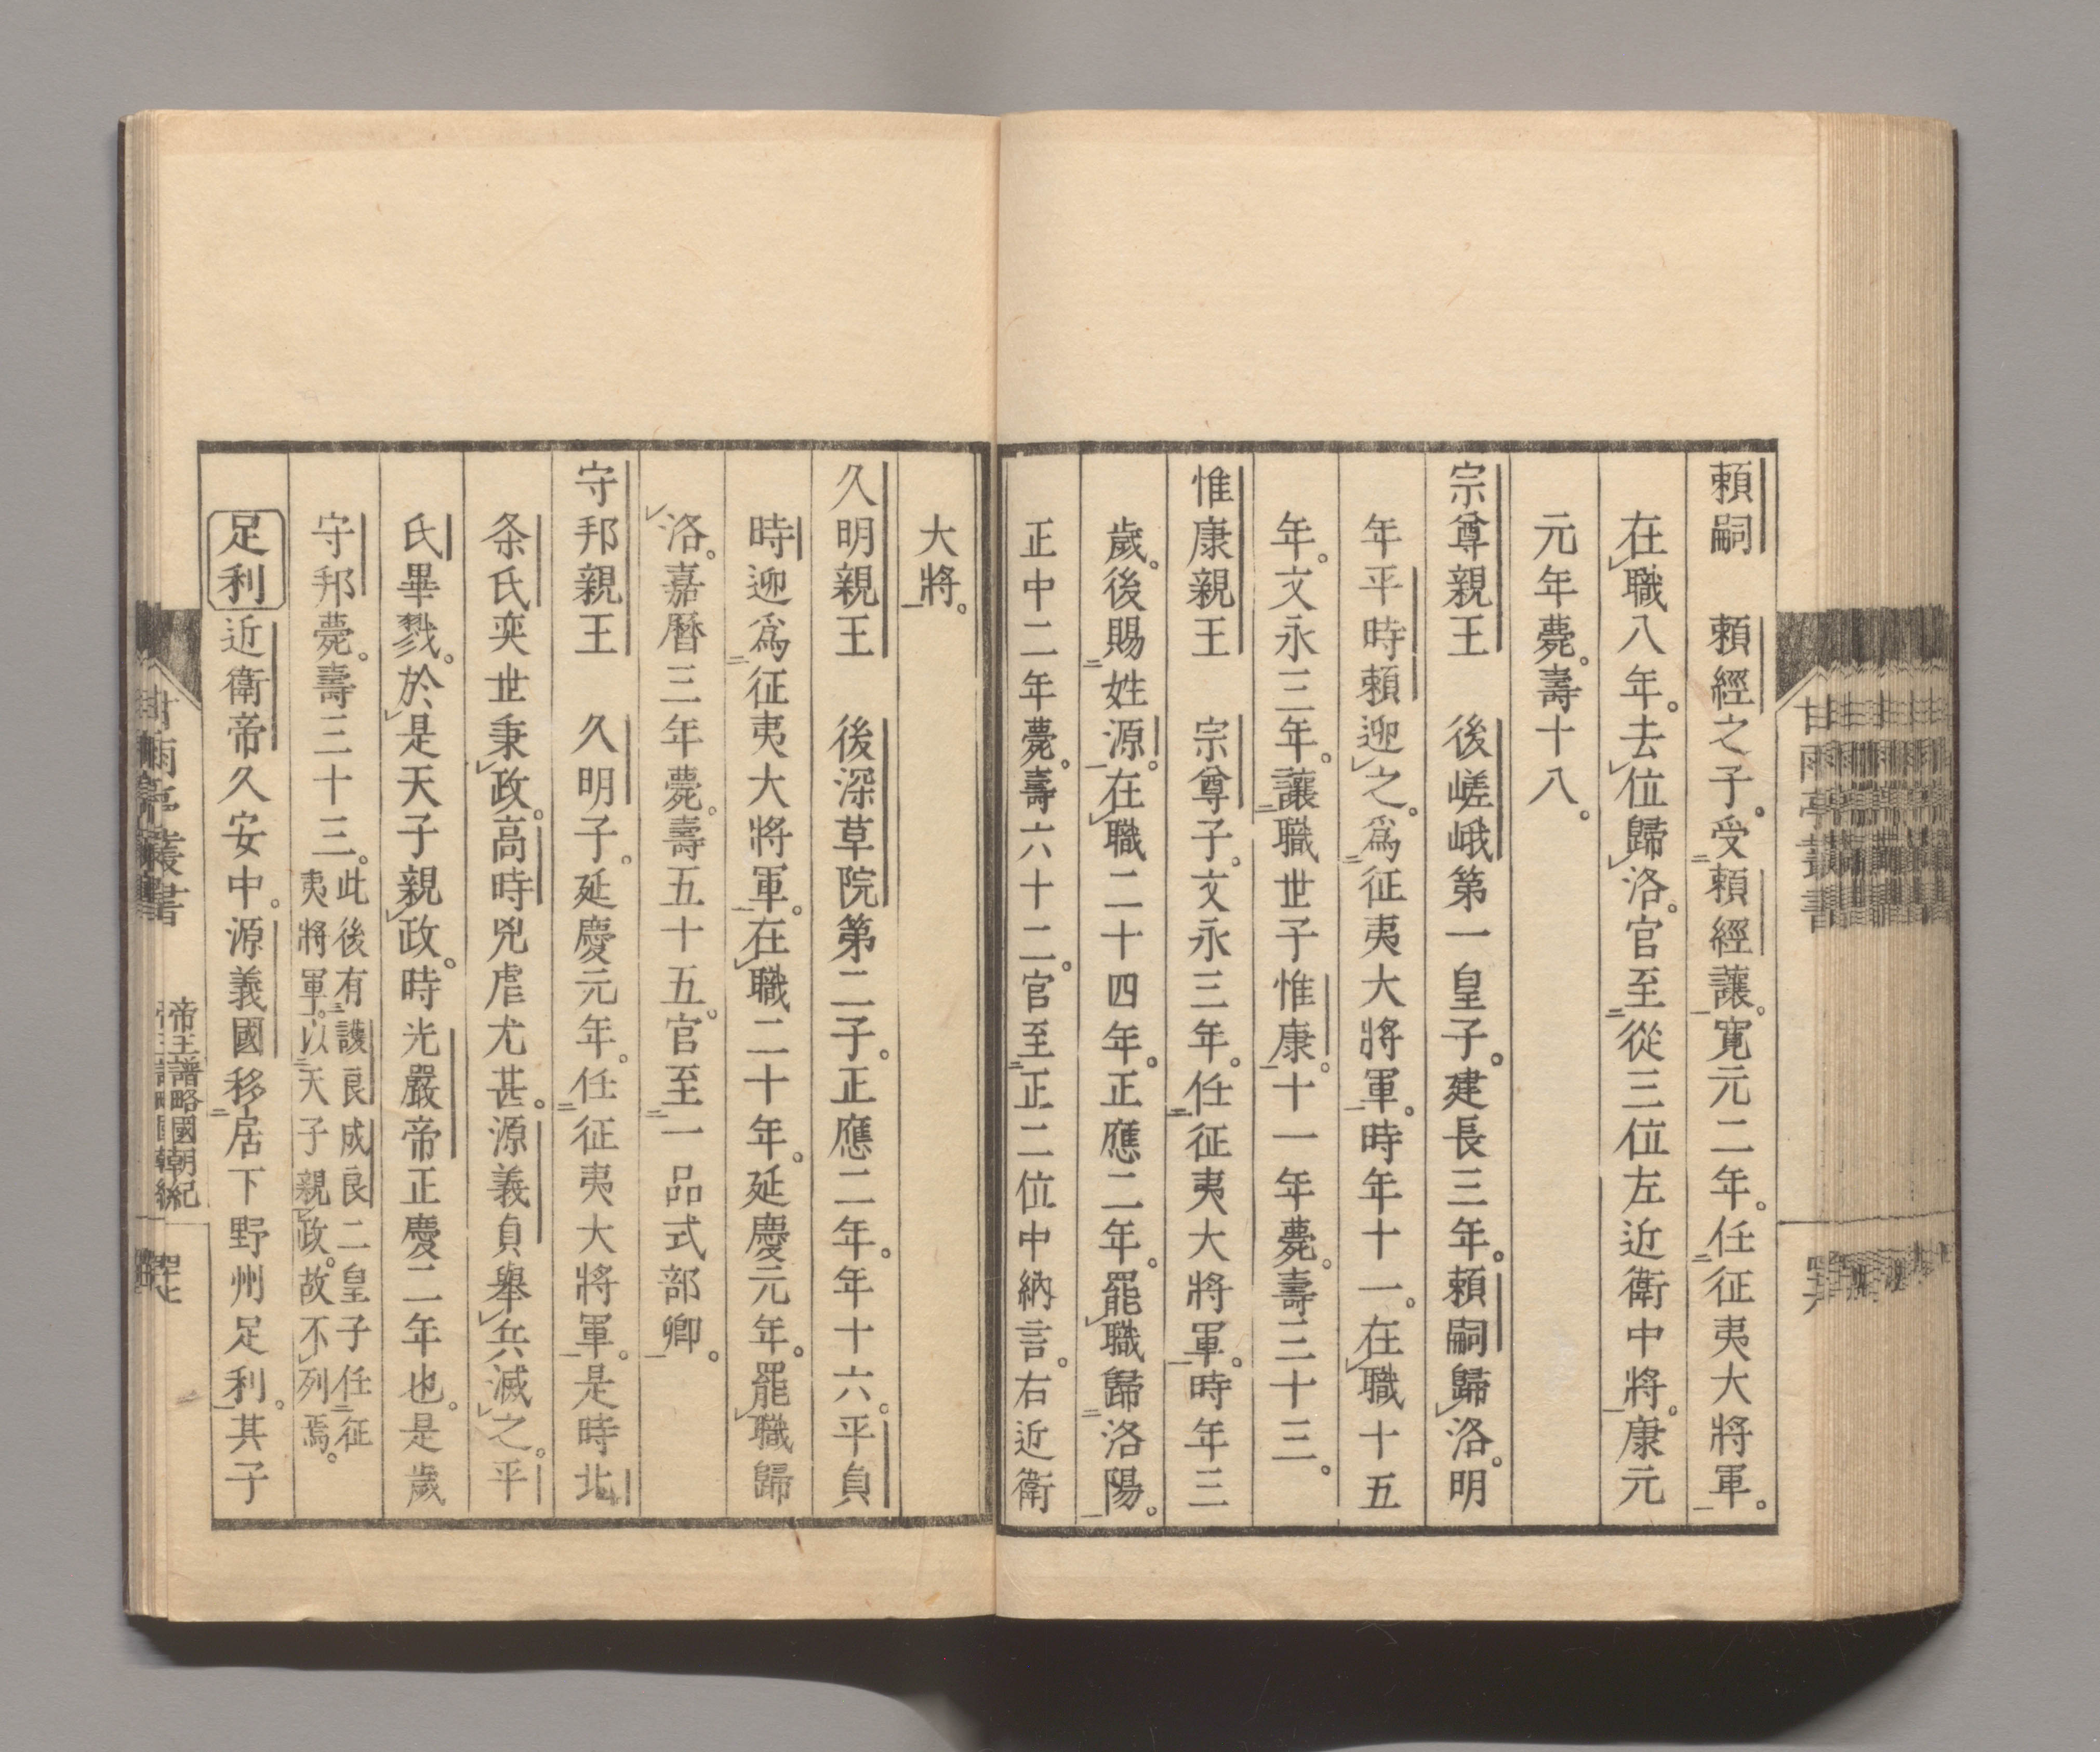 賴嗣　賴經之子。受賴經讓。寛元二年。任征夷大將軍。
在職八年。去位歸洛。官至從三位左近衛中將。康元
元年薨。壽十八。
宗尊親王　後嵯峨第一皇子。建長三年。賴嗣歸洛。明
年平時賴迎之。爲征夷大將軍。時年十一。在職十五
年。文永三年。讓職世子惟康。十一年薨。壽三十三。
惟康親王　宗尊子。文永三年。任征夷大將軍。時年三
歲。後賜姓源。在職二十四年。正應二年。罷職歸洛陽。
正中二年薨。壽六十二。官至正二位中納言。右近衛
大將。
久明親王　後深草院第二子。正應二年。年十六。平貞
時迎爲征夷大將軍。在職二十年。延慶元年。罷職歸
洛。嘉曆三年薨。壽五十五。官至一品式部卿。
守邦親王　久明子。延慶元年。任征夷大將軍。是時北
条氏奕世秉政。高時兇虐尤甚。源義貞舉兵滅之。平
氏畢戮。於是天子親政。時光嚴帝正慶二年也。是歲
守邦薨。壽三十三。此後有護良成良二皇子任征
夷將軍。以天子親政。故不列焉。
足利近衛帝久安中。源義國移居下野州足利。其子
甘雨亭叢書
帝王譜略國朝紀
甘雨亭叢書